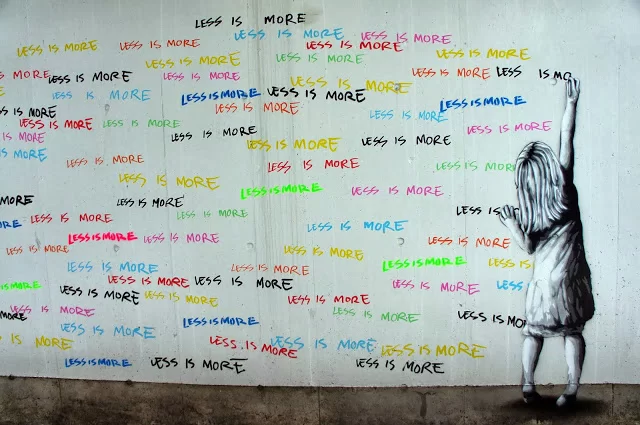 LESS IS MORE
LESS IS MORE LESS IS MORE
LESS IS MORE LESS IS MORE LESS IS MORE
LESS IS MORE LESS IS MORE LESS IS MORE
IS MORE LESS IS MORE LESS IS MORE LESS IS MORE LESS IS MO
LESS IS MORE
LESS IS MORE LESS IS MORE LESS IS MORE LESS IS MORE
IS MORE LESS IS MORE LESS IS MORE
LESS IS MORE LESS IS MORE LESS IS MORE
IS MORE LESS IS MORE
LESS IS MORE LESS IS MORE
IS MORE LESS IS MORE LESS IS MORE LESS IS
LESS IS MORE LESS IS MORE LESS IS MORE
MORE LESS IS MORE
LESS IS MORE LESS IS MORE LESS IS
MORE LESS IS MORE
LESS IS MORE LESS IS MORE LESS IS MORE
LESS IS MORE LESS IS MORE
LESS IS MORE LESS IS MORE LESS IS MORE LESS IS
IS MORE LESS IS MORE LESS IS MORE LESS IS MORE LESS
LESS IS MORE LESS IS MORE LESS IS MORE
MORE LESS IS MORE LESS IS MORE
LESS IS MORE LESS IS MO
LESS IS MORE
LESS IS MORE LESS IS MORE LESS IS MORE LESS IS MORE
LESS IS MORE LESS IS MORE LESS IS MORE